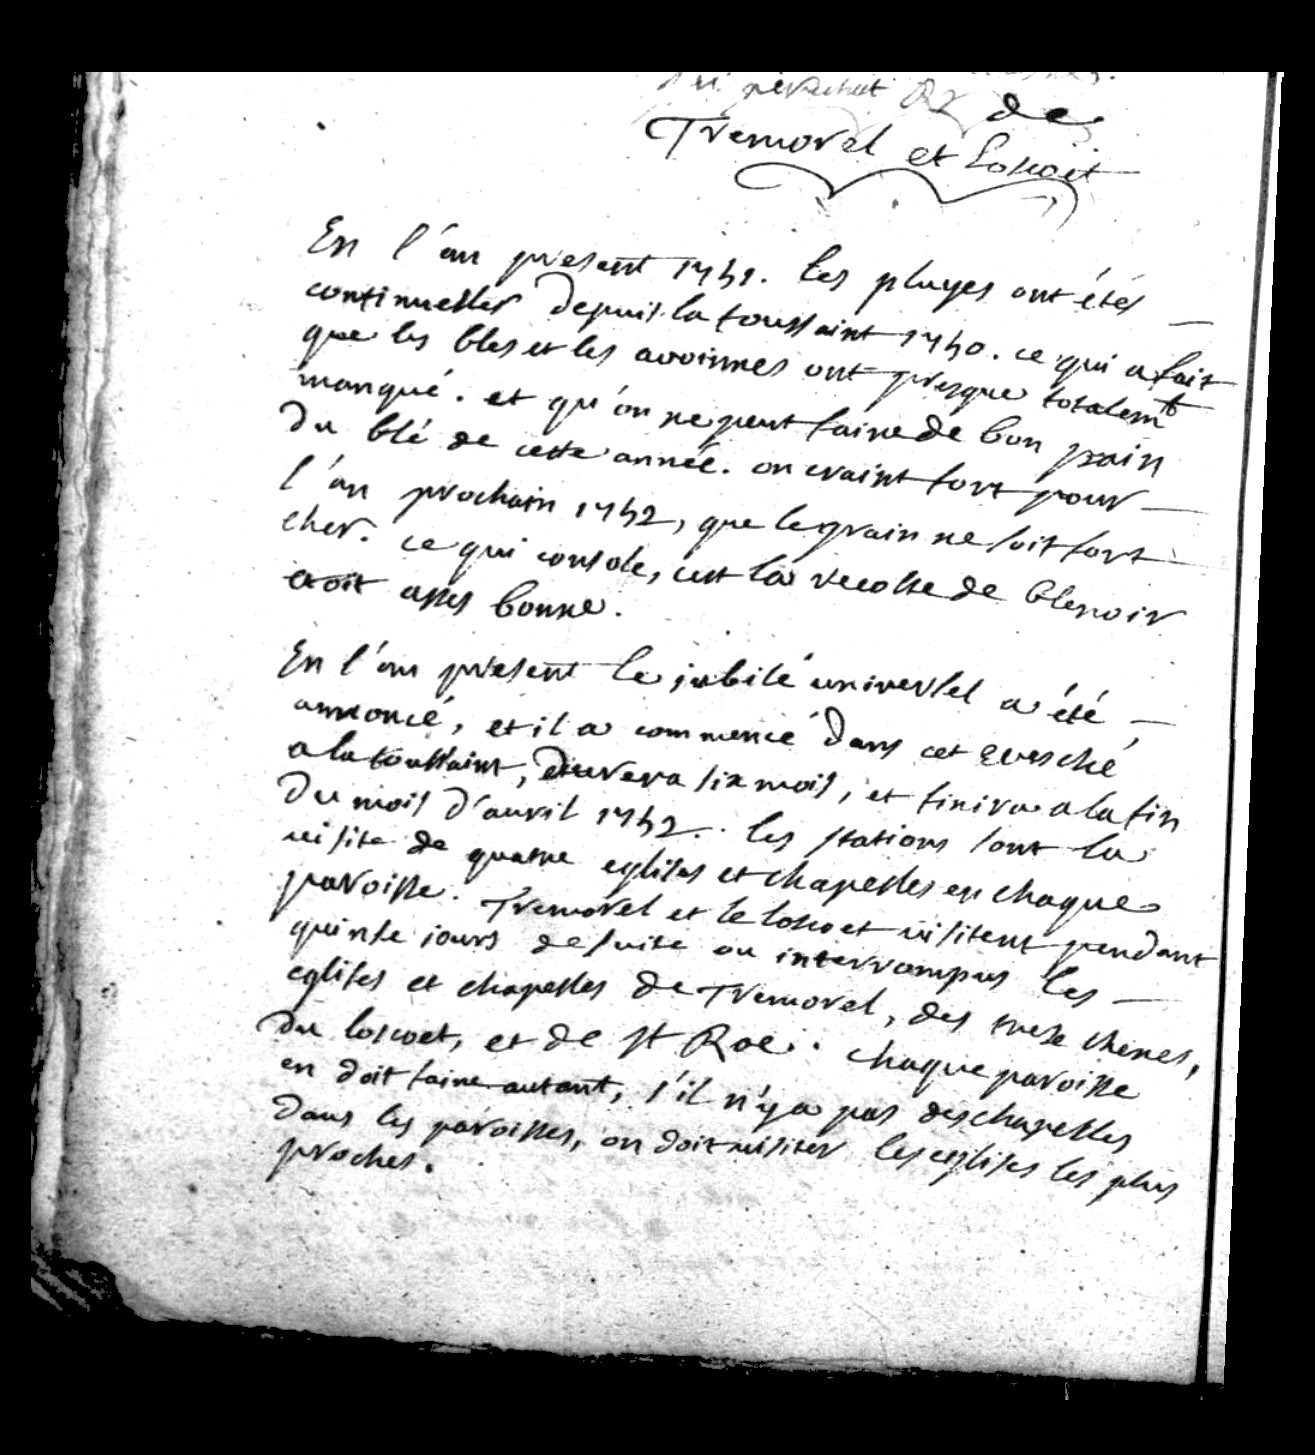 de
Tremorel et Loscoit
En l'an present 1751. les pluyes ont étés
continuelles depuis la toussaint 1750. ce qui a fait
que les bles et les avoinnes ont presque totalemt
manqué. et qu'on ne peut faire de bon pain
du blé de cette année. on craint fort pour
l'an prochain 1752, que le grain ne soit fort
cher. ce qui console, c'est la recolte de blenoir
etoit asses bonne.
En l'an present le jubilé universel a été
annoncé, et il a commencé dans cet evesché
a la toussaint, durera six mois, et finira a la fin
du mois d'auvril 1752. les stations sont la
visite de quatre eglises et chapelles en chaque
paroisse. Tremorel et le loscoet visitent pendant
quinse jours de suite ou interrompus les
eglises et chapelles de Tremorel, des treze chenes,
du loscoet, et de st Roc. chaque paroisse
en doit faire autant, s'il n'y a pas des chapelles
dans les paroisses, on doit visiter les eglises les plus
proches.